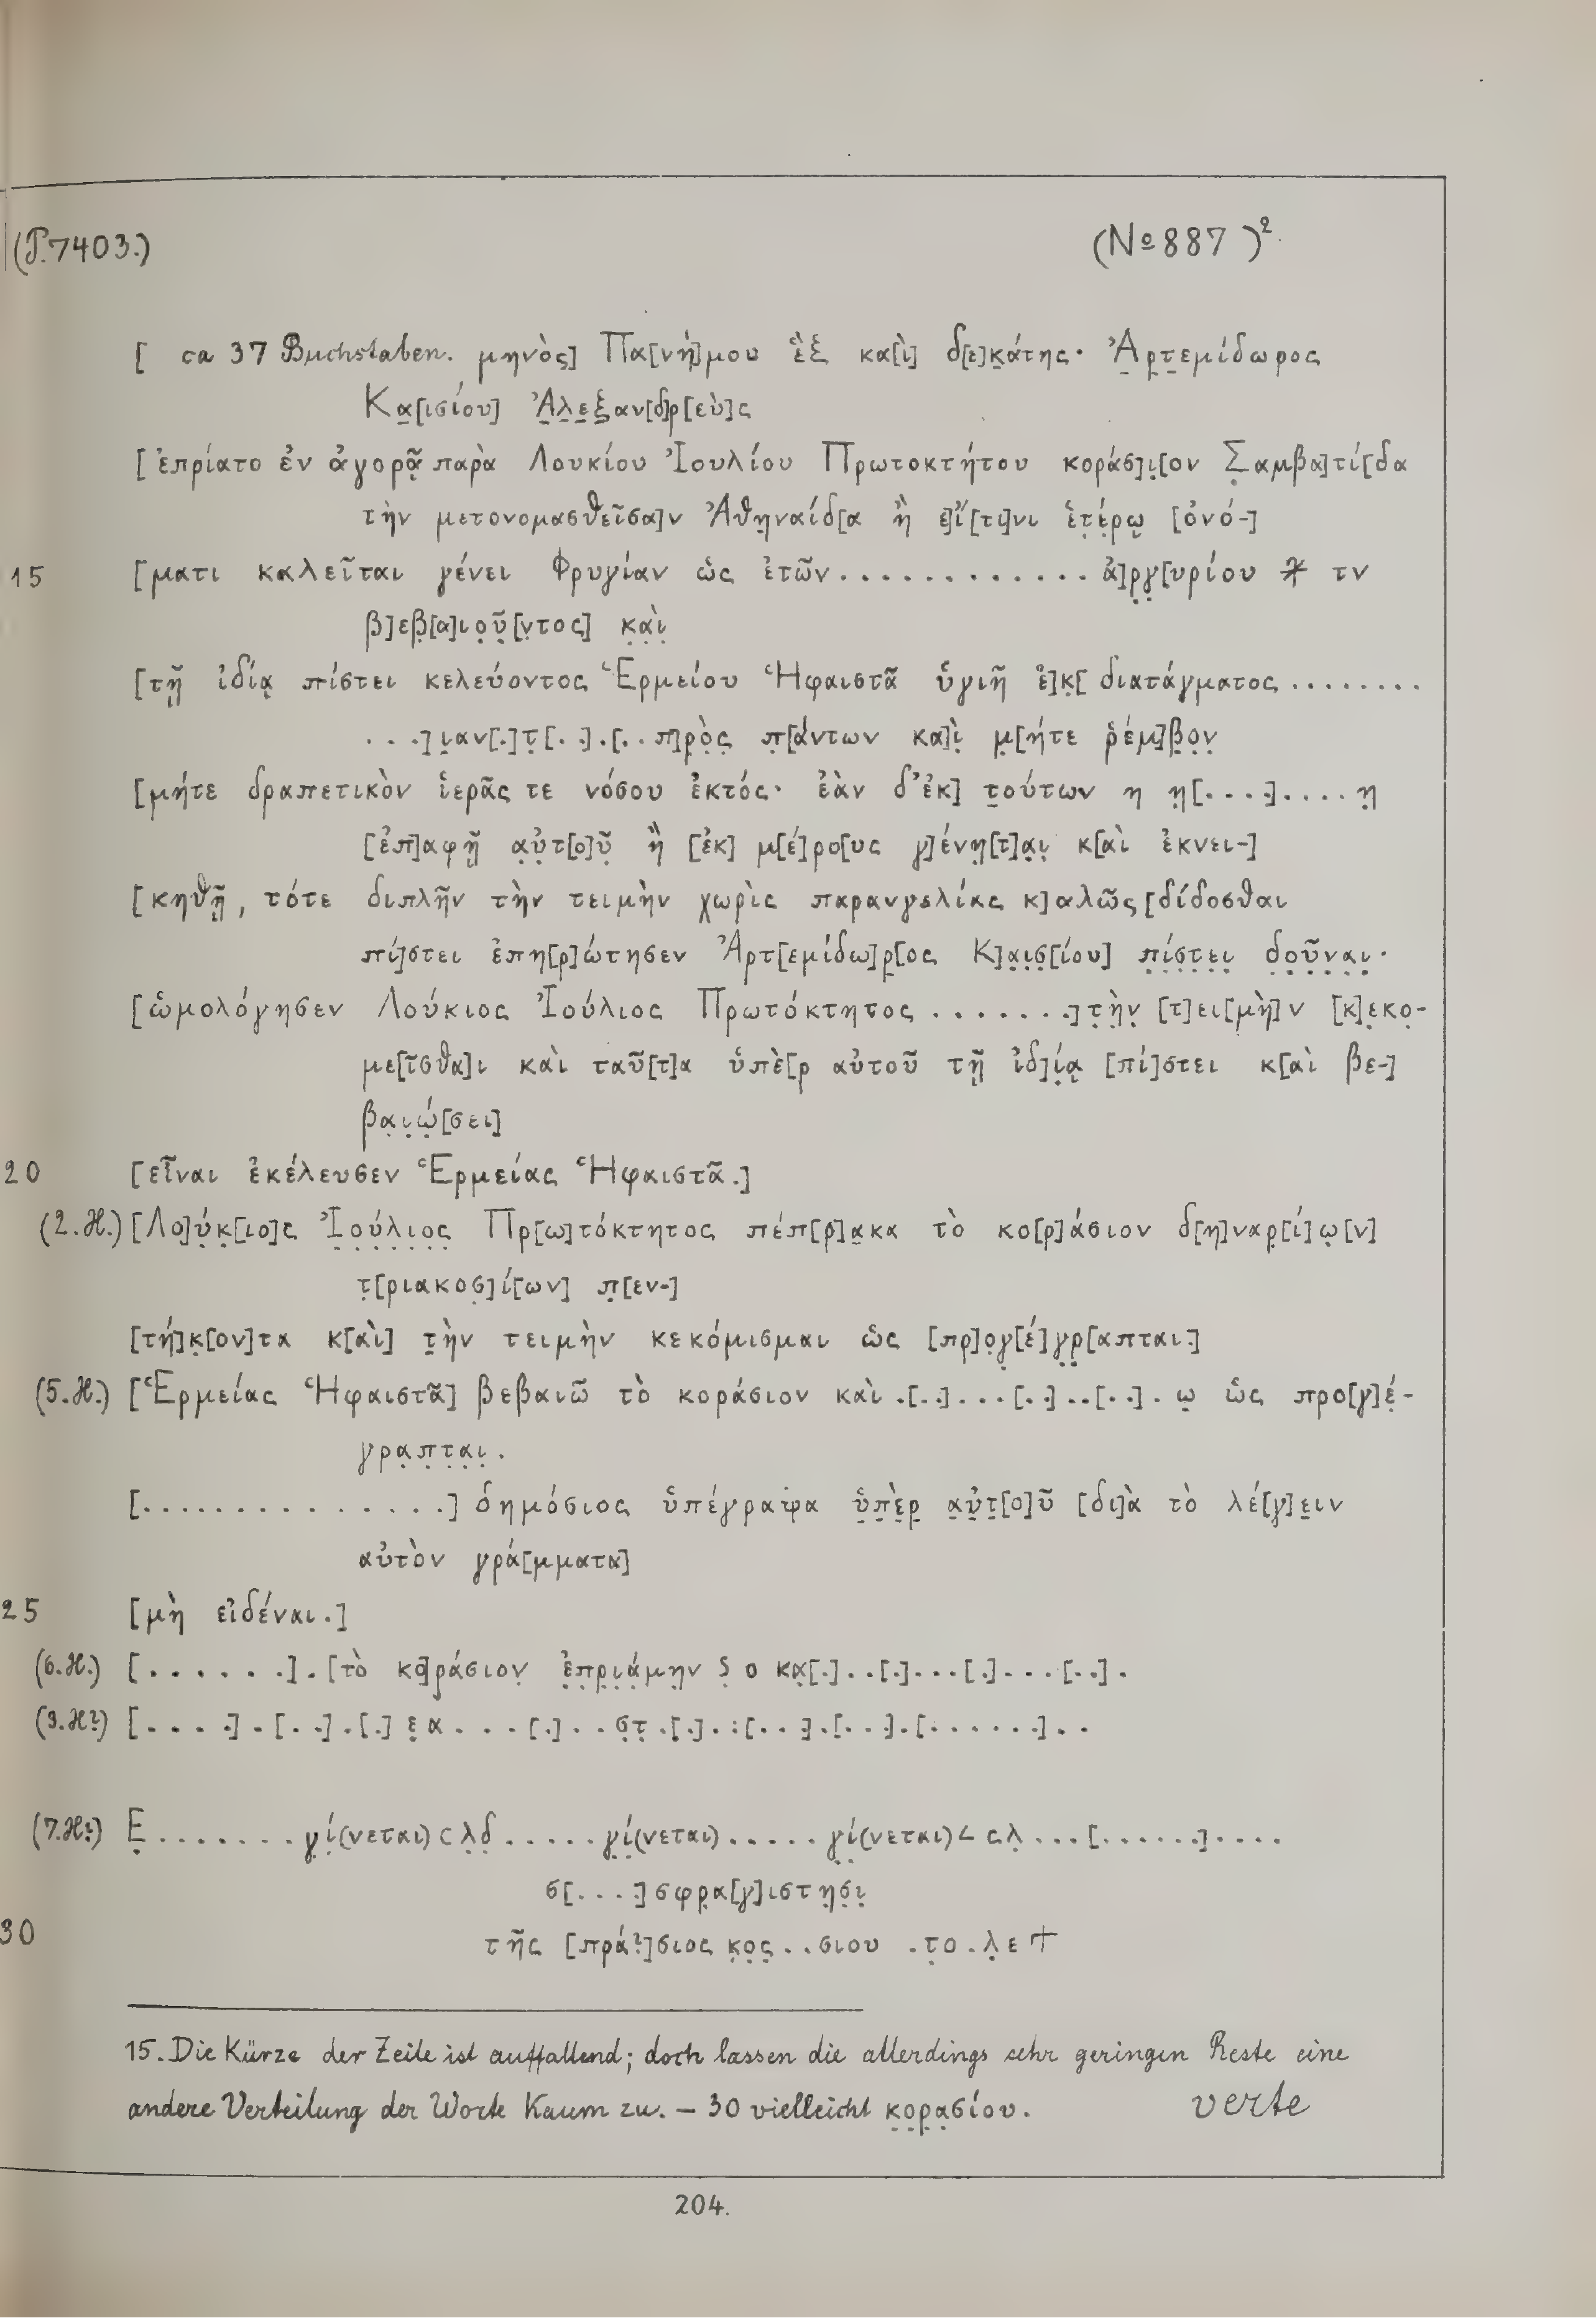 (P. 7403.) (№ 887)²
[ ca 37 Buchstaben. μηνὸς] Πα[νή]μου ἓξ κα[ὶ] δ[ε]κ̣άτης· Ἀ̣ρ̣τ̣εμίδωρος
Κα̣[ισίου] Ἀ̣λ̣ε̣ξ̣αν[δ]ρ[εὺ]ς
[ἐπρίατο ἐν ἀγορᾷ παρὰ Λουκίου Ἰουλίου Πρωτοκτήτου κοράσ]ι̣[ον Σ̣αμβα]τί[δα
τὴν μετονομασθεῖσα]ν Ἀθη̣ναίδ[α ἢ ε]ἴ[τι]νι ἑτ̣έ̣ρῳ [ὀνό-]
15 [ματι καλεῖται γένει Φρυγίαν ὡς ἐτῶν............ ἀ]ρ̣γ̣[υρίου ⚹ τν
β]εβ̣[α]ιο̣ῦ̣[ν̣τος] κ̣α̣ὶ̣
[τῇ ἰδίᾳ πίστει κελεύοντος Ἑρμείου Ἡφαιστᾶ ὑγιῆ ἐ]κ̣[ διατάγματος........
...]ι̣αν[.]τ̣[..].[..π]ρ̣ὸ̣ς̣ π̣[άντων κα]ὶ̣ μ̣[ήτε ῥέμ]β̣ο̣ν̣
[μήτε δραπετικὸν ἱερᾶς τε νόσου ἐκτός· ἐὰν δ’ἐκ] τ̣ούτων η η̣[....]....η̣
[ἐπ]αφῇ α̣ὐ̣τ[ο]ῦ̣ ἢ [ἐκ] μ[έ]ρο[υς γ]ένη̣[τ]α̣ι̣ κ[αὶ ἐκνει-]
[κηθῇ, τότε διπλῆν τὴν τειμὴν χωρὶς παρανγελίας κ]αλῶς [δίδοσθαι
πί]στει ἐπη[ρ]ώτησεν Ἀρτ[εμίδω]ρ̣[ος Κ]α̣ι̣σ̣[ίου] π̣ί̣σ̣τ̣ε̣ι̣ δ̣ο̣ῦ̣ν̣α̣ι̣·
[ὡμολόγησεν Λούκιος Ἰούλιος Πρωτόκτητος .......]τ̣ὴ̣ν̣ [τ]ει[μὴ]ν [κ]ε̣κο̣-
με[ῖσθα]ι καὶ ταῦ[τ]α ὑπὲ[ρ αὐτοῦ τῇ ἰδ]ί̣ᾳ [πί]στει κ[αὶ βε-]
βα̣ι̣ώ̣[σει]
20 [εἶναι ἐκέλευσεν Ἑρμείας Ἡφαιστᾶ.]
(2. H.) [Λο]ύ̣κ̣[ιο]ς Ἰ̣ο̣ύ̣λ̣ι̣ο̣ς̣ Πρ[ω]τόκτητος πέπ[ρ]α̣κα τὸ κο[ρ]άσιον δ[η]ναρ̣[ί]ω̣[ν]
τ̣[ριακοσ̣]ί[ων] π̣[εν-]
[τή]κ̣[ον]τα κ[αὶ] τ̣ὴν τειμὴν κεκόμισμαι ὡς [πρ]ο̣γ[έ]γ̣ρ̣[απται.]
(5. H.) [Ἑρμείας Ἡφαιστᾶ] βεβαιῶ τὸ κοράσιον καὶ .[..]...[..]..[..]. ω̣ ὡς προ[γ]έ̣-
γρα̣π̣τ̣α̣ι̣.
[..............] δημόσιος ὑπέγραψα ὑ̣π̣ὲ̣ρ̣ α̣ὐ̣τ̣[ο]ῦ [δι]ὰ τὸ λέ[γ]ε̣ιν
αὐτὸν γρά[μματα]
25 [μὴ εἰδέναι.]
(6. H.) [.......].[τὸ κο]ράσιον̣ ἐ̣π̣ρ̣ι̣ά̣μη̣ν ς̣ ο κα̣[.]..[.]...[.]...[..].
(3. H?) [....].[..].[.] ε̣α...[.]..σ̣τ̣.[.].:[..].[..].[......]..
(7. H?) Ε̣.......γ̣ί̣(νεται) c λ̣δ.....γ̣ί̣(νεται).....γ̣ί̣(νεται) ∠ ςλ̣...[......]....
σ[....]σφρ̣α[γ]ιστη̣σ̣ι̣
30 τῆς [πρά?]σιος κ̣ο̣ς̣..σιου .τ̣ο.λ̣ε +
15. Die Kürze der Zeile ist auffallend; doch lassen die allerdings sehr geringen Reste eine
andere Verteilung der Worte kaum zu. – 30 vielleicht κ̣ο̣ρ̣α̣σίου. verte
204.